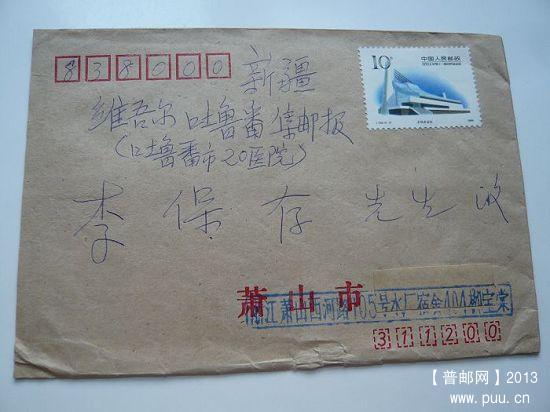 838000
10分
中国人民邮政
新疆
维吾尔吐鲁番集邮报
(吐鲁番市20医院)
李保存先生收
萧山市
浙江萧山西河路105号水厂宿舍404 宝棠
311200
【普邮网】2013
www.puu.cn